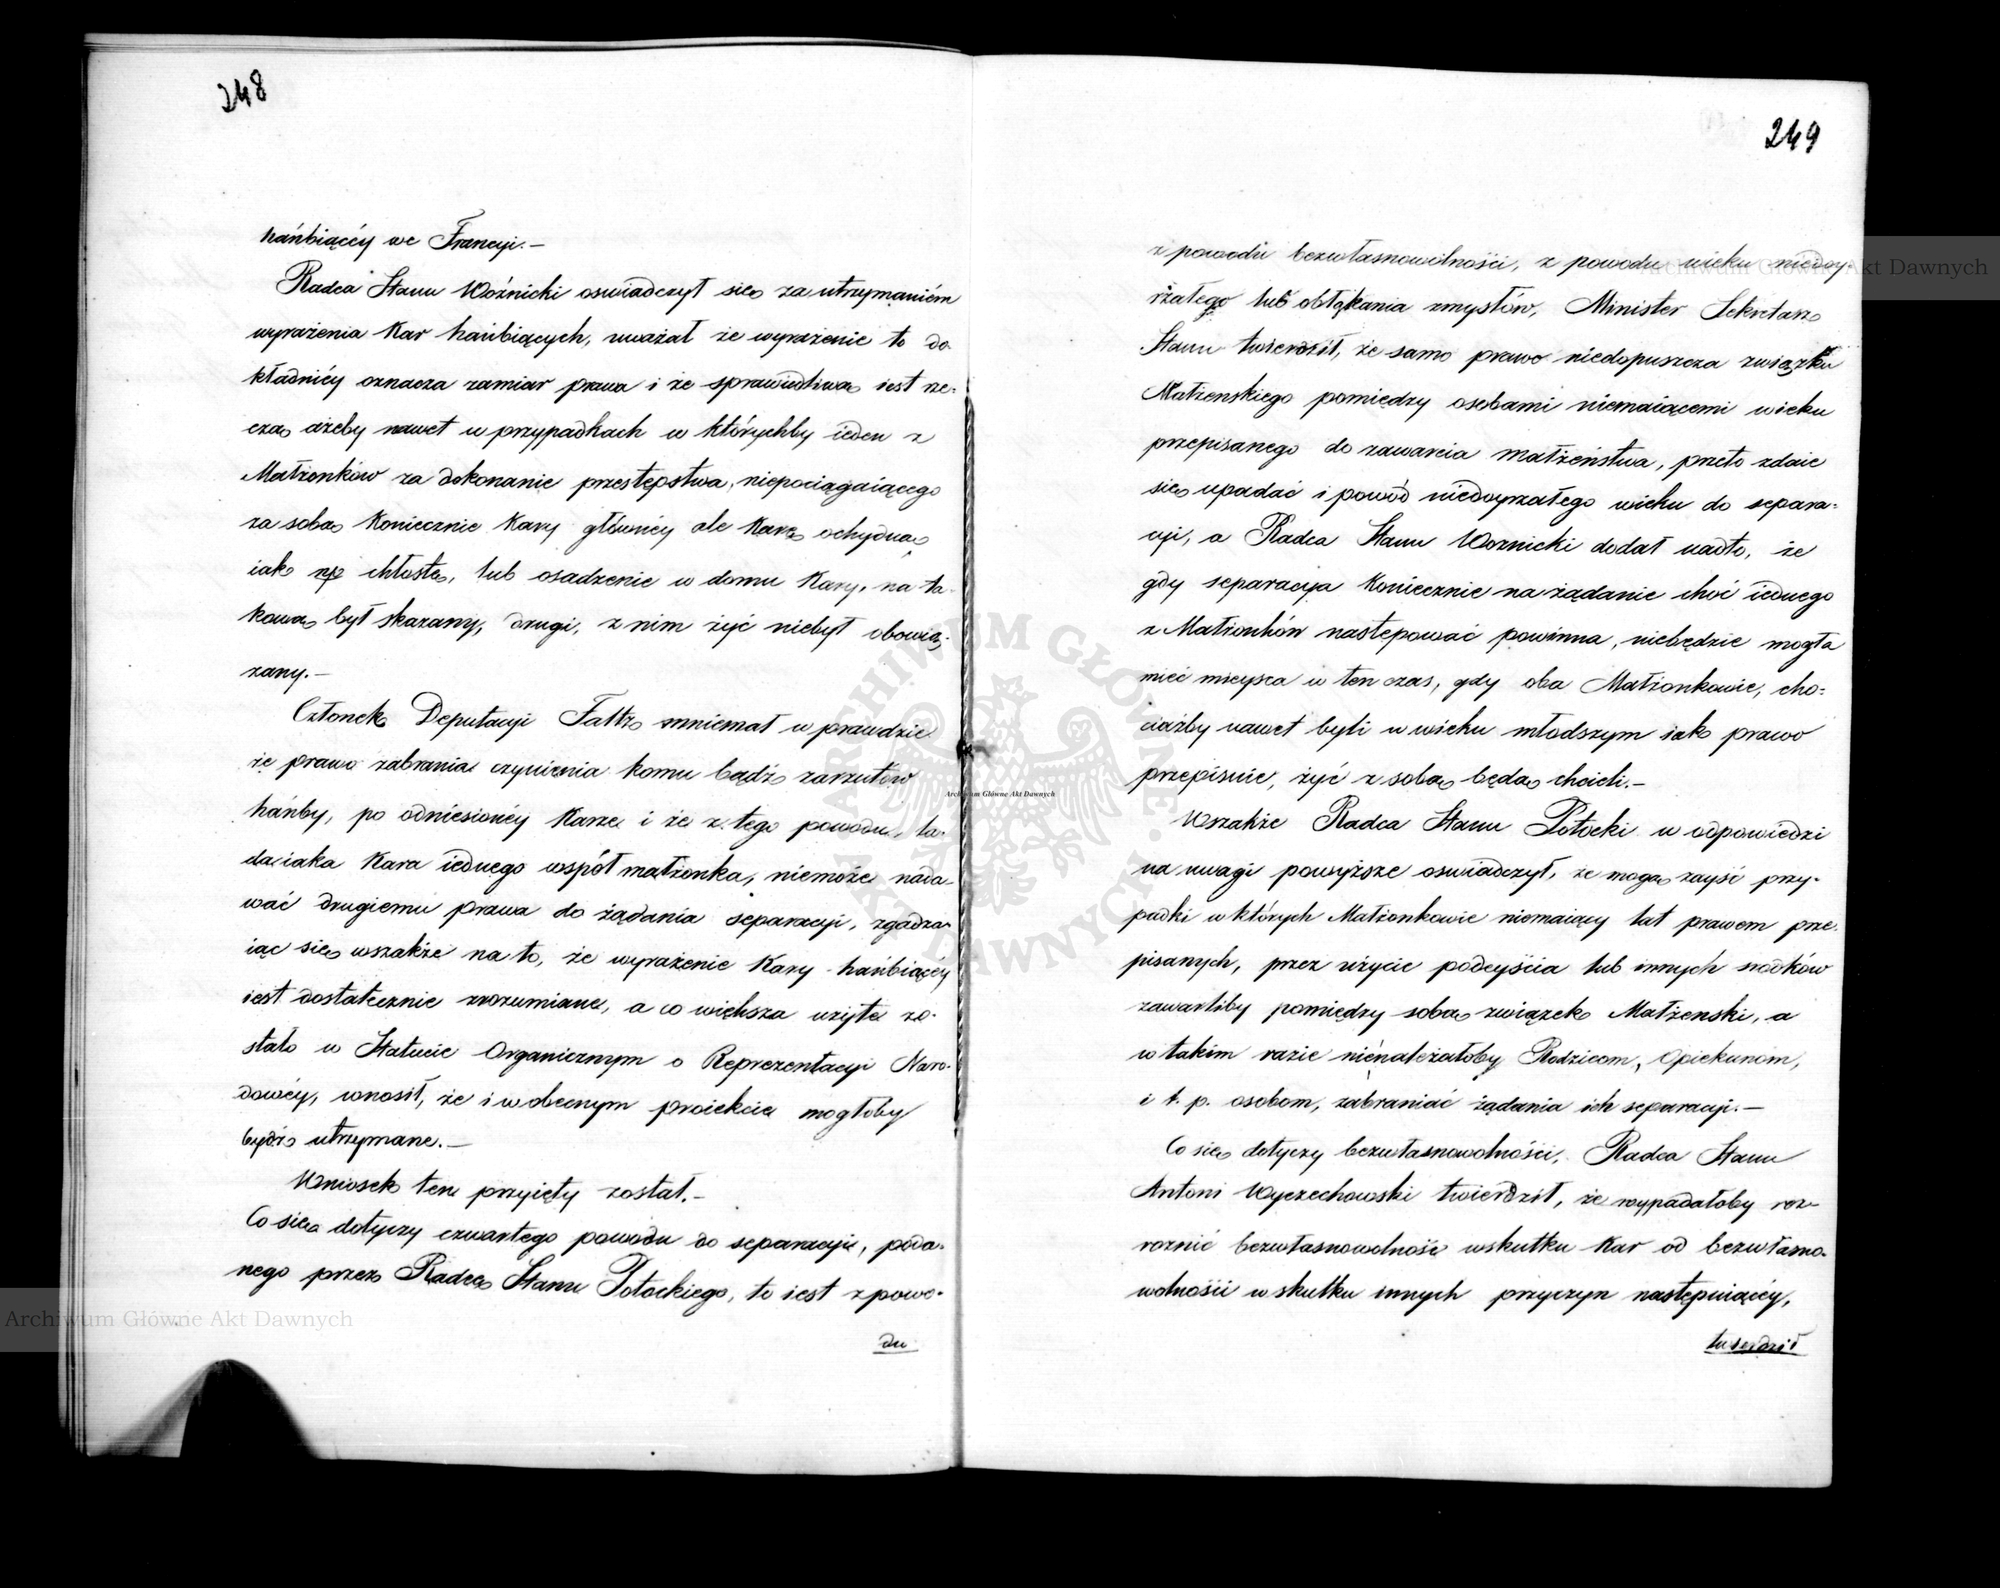 248
hańbiącéy we Francyi.—
Radca Stanu Woźnicki oswiadczył się za utrzymaniém
wyrażenia Kar hańbiących, uważał że wyrażenie to do-
kładniéy oznacza zamiar prawa i że sprawiedliwą iest rze-
czą ażeby nawet w przypadkach w którychby ieden z
Małżonków za dokonanie przestępstwa, niepociągaiącego
za sobą Koniecznie Kary głównéy ale Karę ochydną,
iako np chłostę, lub osadzenie w domu Kary, na ta-
kową był skazany, drugi, z nim żyć niebył obowią-
zany.—
Członek Deputacyi Faltz mniemał w prawdzie
że prawo zabrania czynienia komu bądź zarzutów
hańby, po odniesionéy Karze i że z tego powodu, la-
da iaka Kara iednego współ małżonka, niemoże nada-
wać drugiemu prawa do żądania separacyi, zgadza-
iąc się wszakże na to, że wyrażenie Kary hańbiącéy
iest dostatecznie zrozumiane, a co większa użyte zo-
stało w Statucie Organicznym o Reprezentacyi Naro-
dowéy, wnosił, że i w obecnym proiekcie mogłoby
bydź utrzymane.—
Wniosek ten przyięty został.—
Co się dotyczy czwartego powodu do separacyi, poda-
nego przez Radcę Stanu Potockiego, to iest z powo-
du
249
z powodu bezwłasnowolności, z powodu wieku niedoy-
rzałego lub obłąkania zmysłów, Minister Sekretarz
Stanu twierdził, że samo prawo niedopuszcza związku
Małżenskiego pomiędzy osobami niemaiącemi wieku
przepisanego do zawarcia małżeństwa, przeto zdaie
się upadać i powód niedoyrzałego wieku do separa-
cyi, a Radca Stanu Woznicki dodał nadto, że
gdy separacya Koniecznie na żądanie choć iednego
z Małżonków następować powinna, niebędzie mogła
mieć mieysca w ten czas, gdy oba Małżonkowie, cho-
ciażby nawet byli w wieku młodszym iak prawo
przepisuie, żyć z sobą będą chcieli.—
Wszakże Radca Stanu Potocki w odpowiedzi
na uwagi powyższe oswiadczył, że mogą zayść przy-
padki w których Małżonkowie niemaiący lat prawem prze-
pisanych, przez użycie podeyścia lub innych srodków
zawarliby pomiędzy sobą związek Małżenski, a
w takim razie nienależałoby Rodzicom, Opiekunom,
i t. p. osobom, zabraniać żądania ich separacyi.—
Co się dotyczy bezwłasnowolności, Radca Stanu
Antoni Wyczechowski twierdził, że wypadałoby roz-
roznić bezwłasnowolność wskutku Kar od bezwłasno-
wolności w skutku innych przyczyn następuiącéy,
twierdził
Archiwum Główne Akt Dawnych
Archiwum Główne Akt Dawnych
Archiwum Główne Akt Dawnych
ARCHIWUM GŁÓWNE AKT DAWNYCH